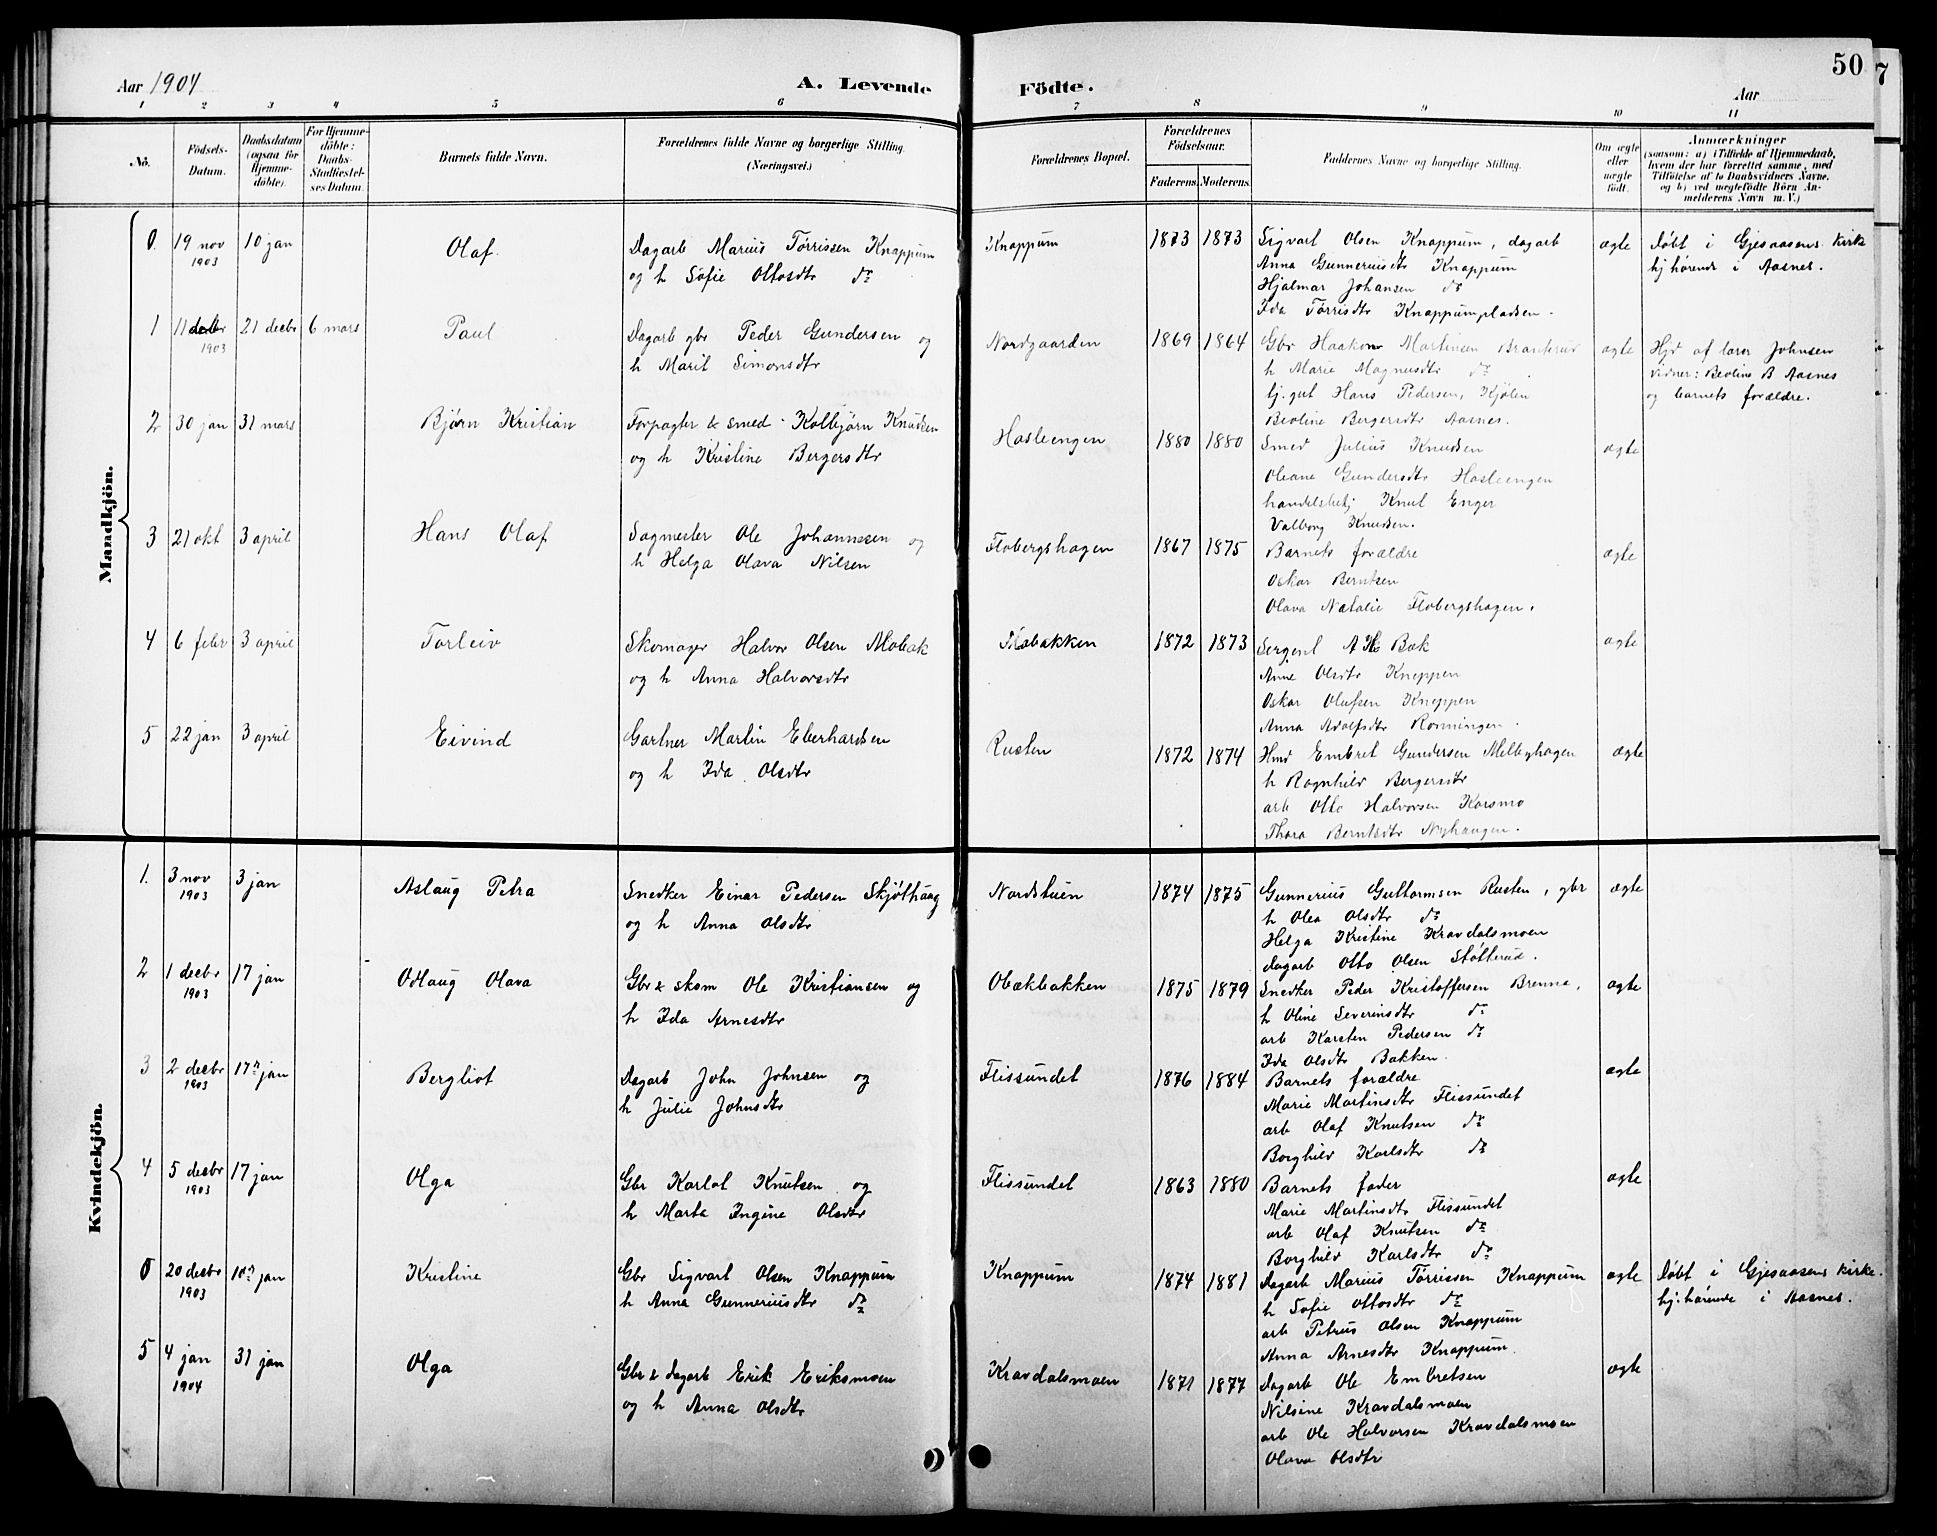 50
7
Aar 1904
A. Levende
Födte.
Aar
1 2 3 4 5 6 7 8 9 10 11
No.
Födsels-Datum.
Daabsdatum (ogsaa for Hjemme-döbte).
For Hjemme-döbte: Daabs-Stadfæstel-ses Datum.
Barnets fulde Navn.
Forældrenes fulde Navne og borgerlige Stilling. (Næringsvei.)
Forældrenes Bopæl.
Forældrenes Födselsaar.
Faderens. Moderens.
Faddernes Navne og borgerlige Stilling.
Om ægte eller uægte födt.
Anmærkninger
(saasom: a) i Tilfælde af Hjemmedaab, hvem der har forrettet samme, med Tilföielse af to Daabsvidners Navne, og b) ved uægtefödte Börn An-melderens Navn m. V.)
Mandkjön.
0. 19 nov 1903 10 jan Olaf. Dagarb Marius Tørrissen Knappum
og h Sofie Ottosdtr do
Knappum 1873 1873 Sigvart Olsen Knappum, dagarb
Anna Gunneriusdtr Knappum
Hjalmar Johansen do
Ida Tørrisdtr Knappumpladsen.
ægte døbt i Gjesaasens kirke
hjhørende i Aasnes.
1 11 decbr 1903 21 decbr 6 mars Paul Dagarb gbr Peder Gundersen og
h Marit Simonsdtr
Nordgaarden 1869 1864 Gbr Haakon Martinsen Branterud
h Marie Magnusdtr do
Hans Pedersen, Kjølen
Beoline Bergersdtr Aasnes.
ægte Hjd af lærer Johnsen
vidner: Beoline B Aasnes
og barnets forældre.
2 30 jan 31 mars Bjørn Kristian Forpagter & smed Kolbjørn Knudsen
og h Kristine Bergersdtr
Hasleengen 1880 1880 Smed Julius Knudsen
Oleane Gundersdtr Hasleengen
handelsbetj Knut Enger
Valborg Knudsen.
ægte
3 21 okt 3 april Hans Olaf Sagmester Ole Johannesen og
h Helga Olava Nilsen
Flobergshagen 1867 1875 Barnets forældre
Oskar Berntsen
Olava Natalie Flobergshagen.
ægte
4 6 febr 3 april Torleiv Skomager Halvor Olsen Mobak
og h Anna Halvorsdtr
1872 1873 Sergent A Bak
Anne Olsdtr Kneppen
Oskar Olufsen Kneppen
Anna Adolfsdtr Rønningen.
ægte
5 22 jan 3 april Eivind Gartner Martin Eberhardsen
og h Ida Olsdtr
Rusten 1872 1874 Hmd Embret Gundersen Melbyhagen
h Ragnhild Bergersdtr
arb Otto Halvorsen Karsmo
Thora Berntsdtr Nyhaugen.
ægte
Kvindekjön.
1. 3 nov 1903 3 jan Aslaug Petra Snedker Einar Pedersen Skjøthaug
og h Anna Olsdtr
Nordstuen 1874 1875 Gunnerius Guttormsen Rusten, gbr
h Olea Olsdtr do
Helga Kristine Kravdalsmoen
dagarb Otto Olsen Støtterud.
ægte
2 1 decbr 1903 17 jan Odlaug Olava Gbr & skom Ole Kristiansen og
h Ida Arnesdtr
Obækbakken 1875 1879 Snedker Peder Kristoffersen Brenna,
h Oline Severinsdtr do
arb Karsten Pedersen do
Ida Olsdtr Bakken.
ægte
3 2 decbr 1903 17 jan Bergliot Dagarb John Johnsen og
h Julie Johnsdtr
Flissundet 1876 1884 Barnets forældre
Marie Martinsdtr Flissundet
arb Olaf Knutsen do
Borghild Karlsdtr do
ægte
4 5 decbr 1903 17 jan Olga Gbr Karlot Knutsen og
h Marta Ingine Olsdtr
Flissundet 1863 1880 Barnets fader
Marie Martinsdtr Flissundet
arb Olaf Knutsen do
Borghild Karlsdtr do
ægte
0 20 decbr 1903 10 jan Kristine Gbr Sigvart Olsen Knappum
h Anna Gunneriusdtr do
Knappum 1874 1881 Dagarb Marius Tørrissen Knappum
h Sofie Ottosdtr do
arb Petrus Olsen Knappum
Anna Arnesdtr Knappum.
ægte døbt i Gjesaasens kirke.
hj.hørende i Aasnes.
5 4 jan 1904 31 jan Olga Gbr & dagarb Erik Eriksmoen
og h Anna Olsdtr
Kravdalsmoen 1871 1877 Dagarb Ole Embretsen
Nilsine Kravdalsmoen
arb Ole Halvorsen Kravdalsmoen
Olava Olsdtr
ægte